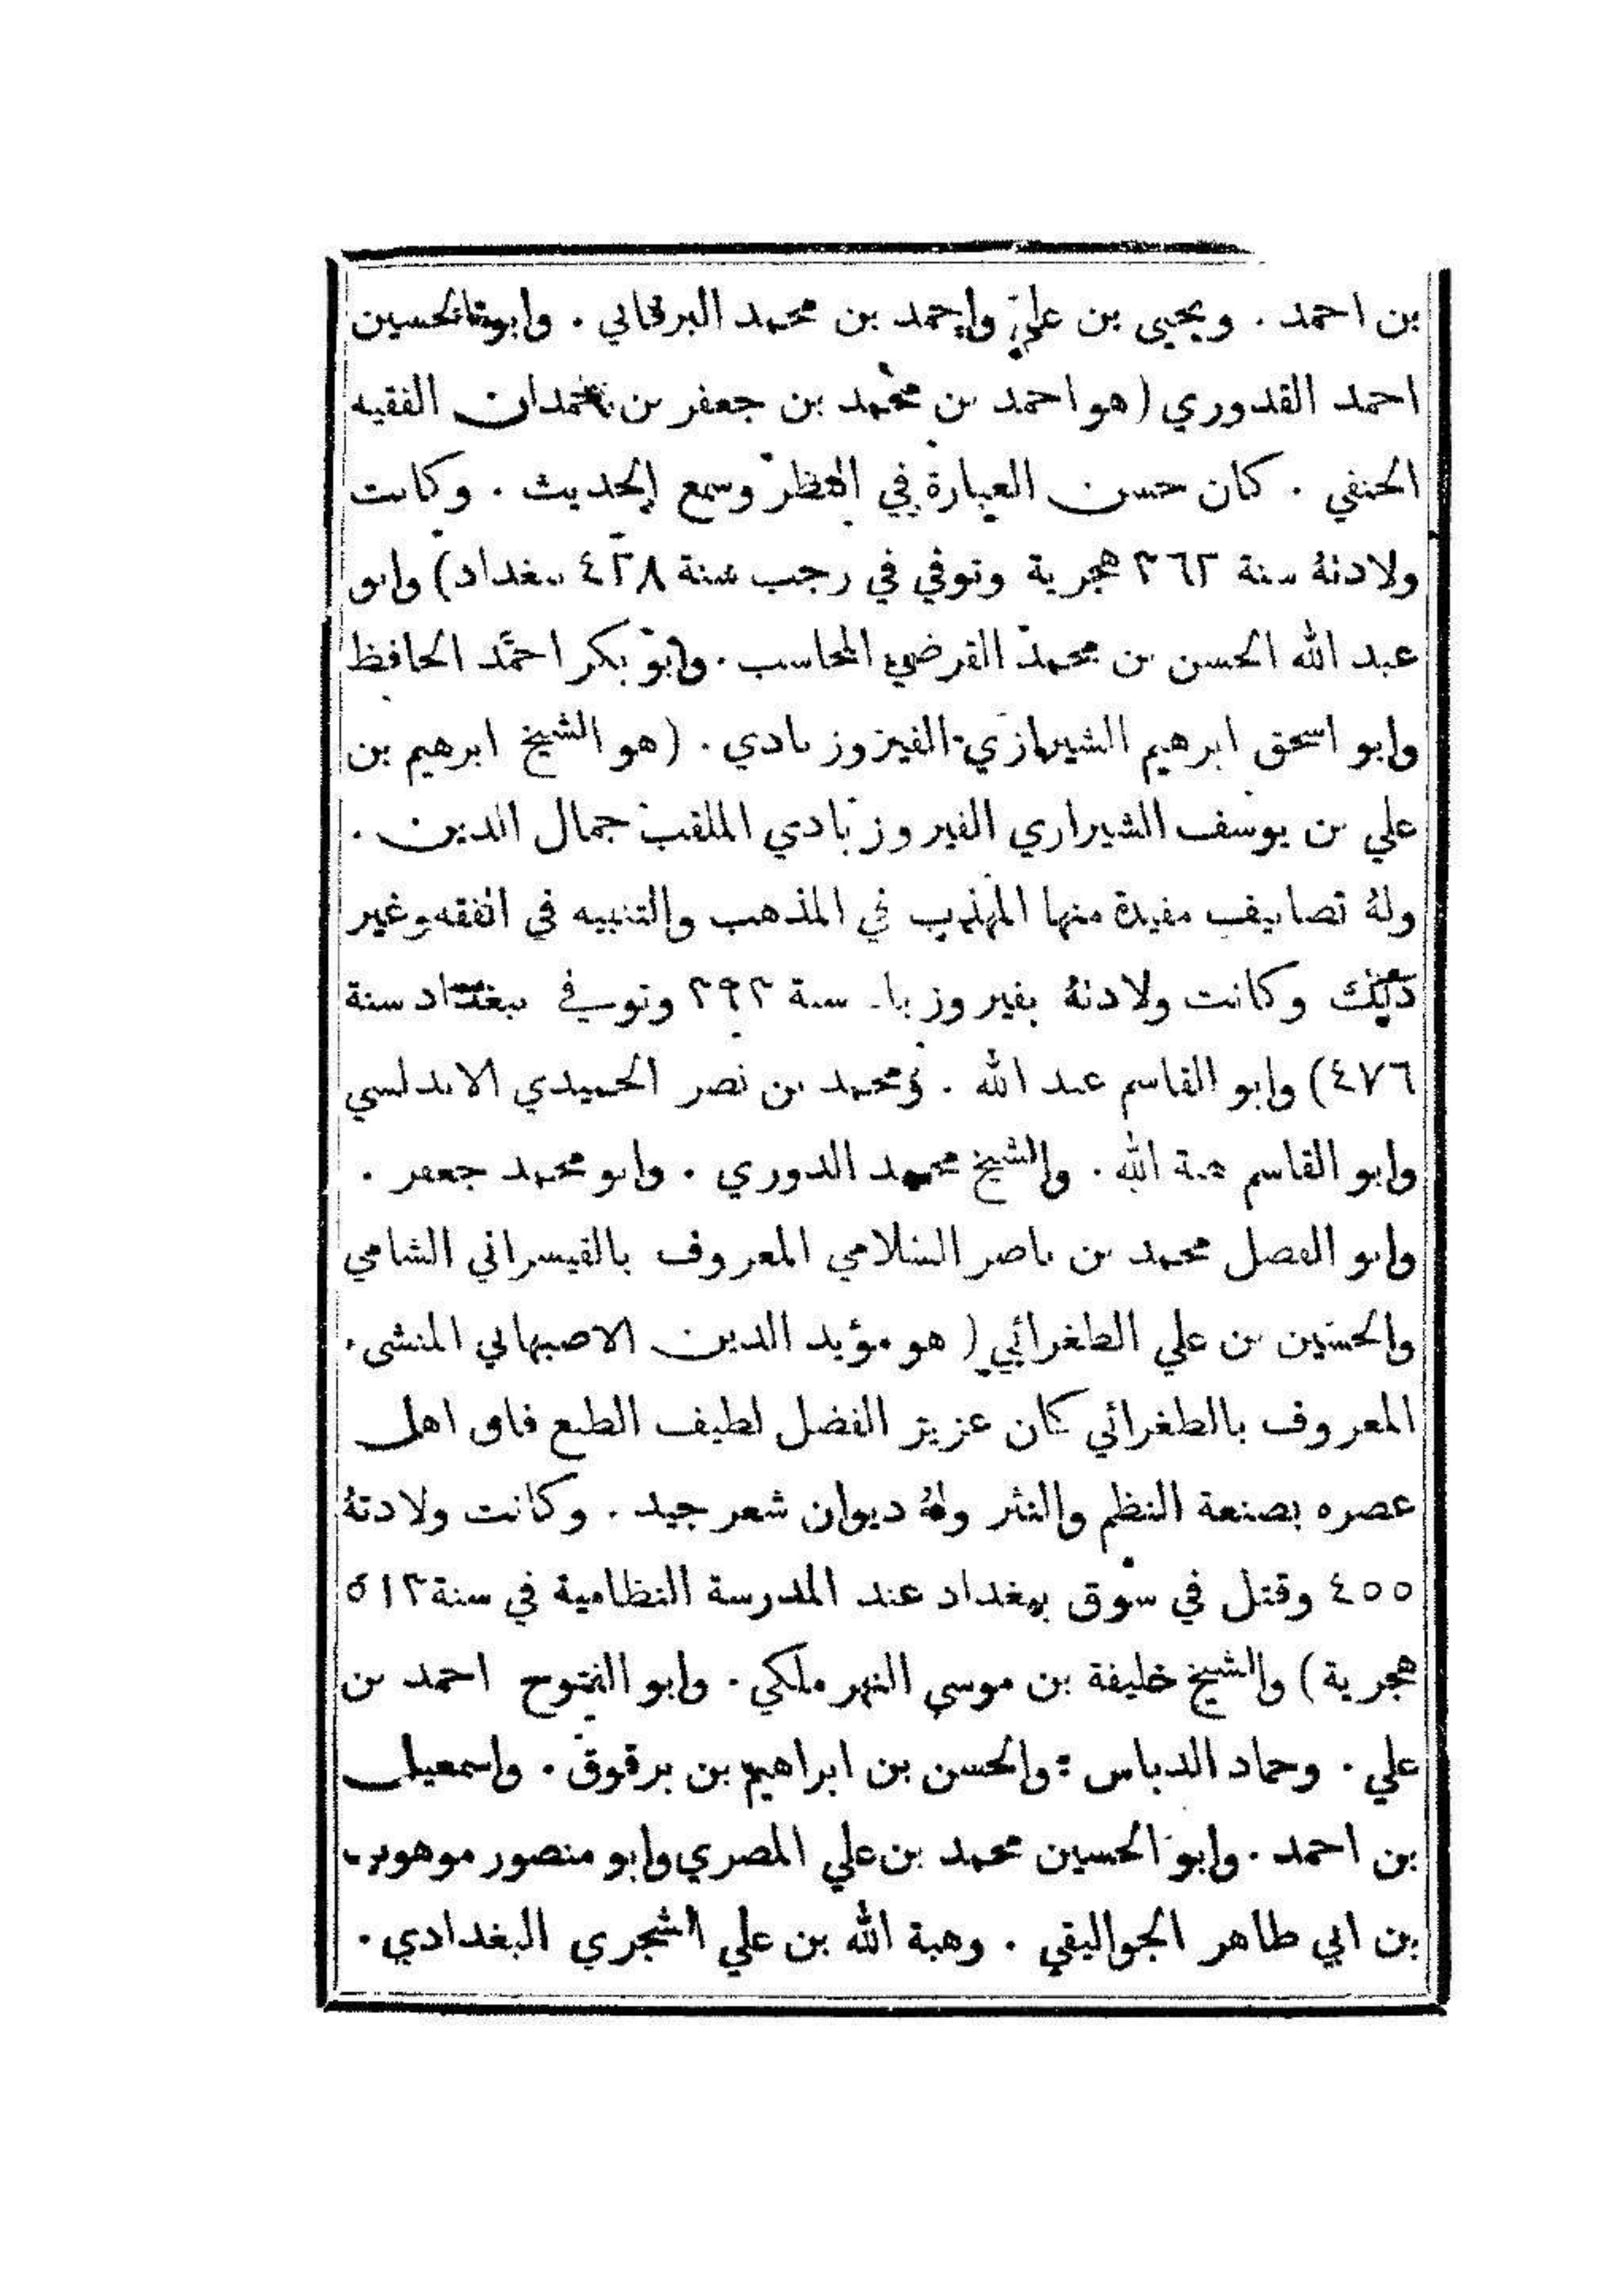 بن احمد . ويحيى بن علي واحمد بن محمد البرقاني . وابو الحسين
احمد القدوري (هو احمد بن محمد بن جعفر بن حمدان الفقيه
الحنفي . كان حسن العبارة في النظر وسمع الحديث . وكانت
ولادتهُ سنة ٣٦٢ هجرية وتوفي في رجب سنة ٤٢٨ ببغداد) وابو
عبد الله الحسن بن محمد الفرضي المحاسب . وابو بكر احمد الحافظ
وابو اسحق ابرهيم الشيرازي الفيروز بادي . (هو الشيخ ابرهيم بن
علي بن يوسف الشيرازي الفيروز بادي الملقب جمال الدين .
ولهُ تصانيف مفيدة منها المهذب في المذهب والتنبيه في الفقه وغير
ذلك وكانت ولادتهُ بفيروز باد سنة ٣٩٣ وتوفي ببغداد سنة
٤٧٦) وابو القاسم عبد الله . ومحمد بن نصر الحميدي الاندلسي
وابو القاسم هبة الله . والشيخ محمد الدوري . وابو محمد جعفر .
وابو الفضل محمد بن ناصر السلامي المعروف بالقيسراني الشامي
والحسين بن علي الطغرائي ( هو مؤيد الدين الاصبهاني المنشىء
المعروف بالطغرائي كان عزيز الفضل لطيف الطبع فاق اهل
عصره بصنعة النظم والنثر ولهُ ديوان شعر جيد . وكانت ولادتهُ
٤٥٥ وقتل في سوق بغداد عند المدرسة النظامية في سنة ٥١٣
هجرية) والشيخ خليفة بن موسى النهر ملكي . وابو الفتوح احمد بن
علي . وحماد الدباس . والحسن بن ابراهيم بن برقوق . واسمعيل
بن احمد . وابو الحسين محمد بن علي المصري وابو منصور موهوب
بن ابي طاهر الجواليقي . وهبة الله بن علي الشجري البغدادي .